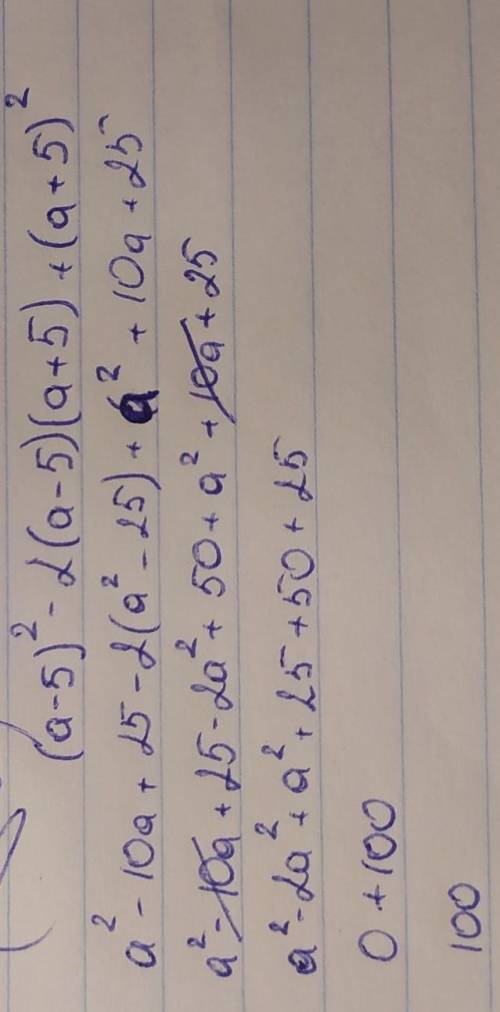 (a-5)² - 2(a-5)(a+5) + (a+5)²
a² - 10a + 25 - 2(a² - 25) + a² + 10a + 25
a² - 10a + 25 - 2a² + 50 + a² + 10a + 25
a² - 2a² + a² + 25 + 50 + 25
0 + 100
100